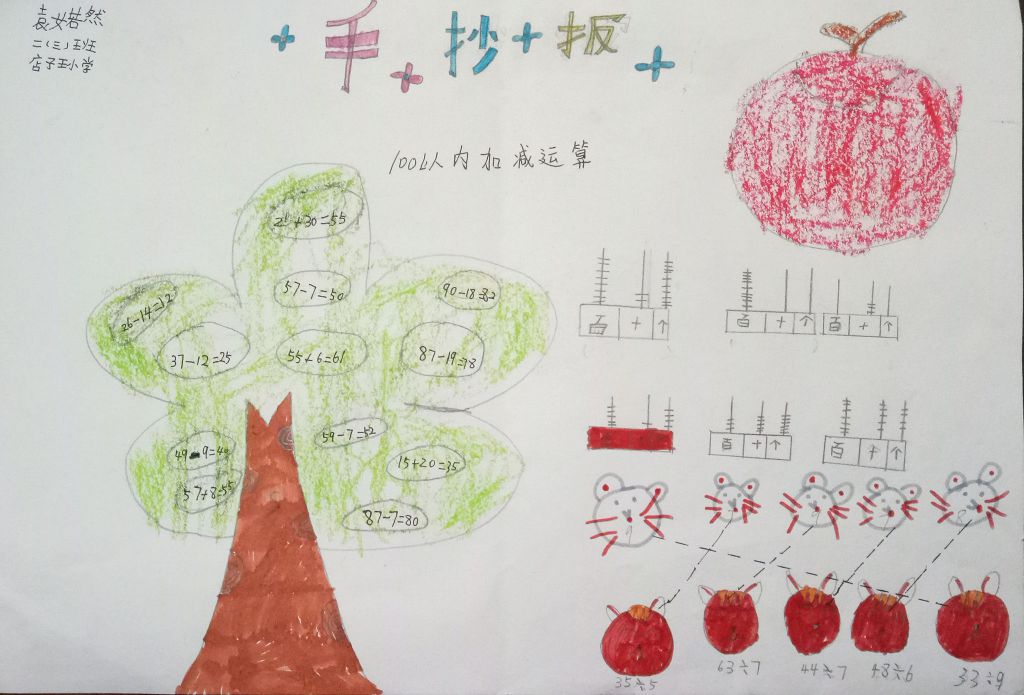 袁女若然
二(三)班
店子王小学
手抄扳
100以人内加减运算
25+30=55
57-7=50
90-18=82
26-14=12
37-12=25
55+6=61
87-19=78
59-7=52
49-9=40
15+20=35
57+8=55
87-7=80
百 十 个
百 十 个
百 十 个
百 十 个
百 十 个
35÷5
63÷7
44÷7
48÷6
33÷9